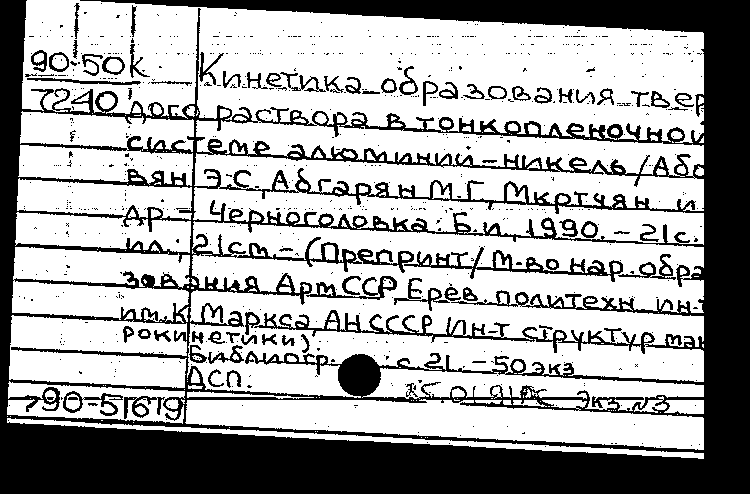 90-50к Кинетика образования твер
7240 дого раствора в тонкопленочной
системе алюминий-никель / Або
вян Э.С., Абгарян М.Г., Мкртчян и
др. - Черноголовка: Б.и., 1990. - 21с.
ил.; 21см. - (Препринт / М-во нар. обра
зования АрмССР, Ерев. политехн. ин-т
им. К. Маркса, АН СССР, Ин-т структур мак
рокинетики).
Библиогр. с 21. - 50экз
ДСП. 25.01.91 Экз. N3
90-51619